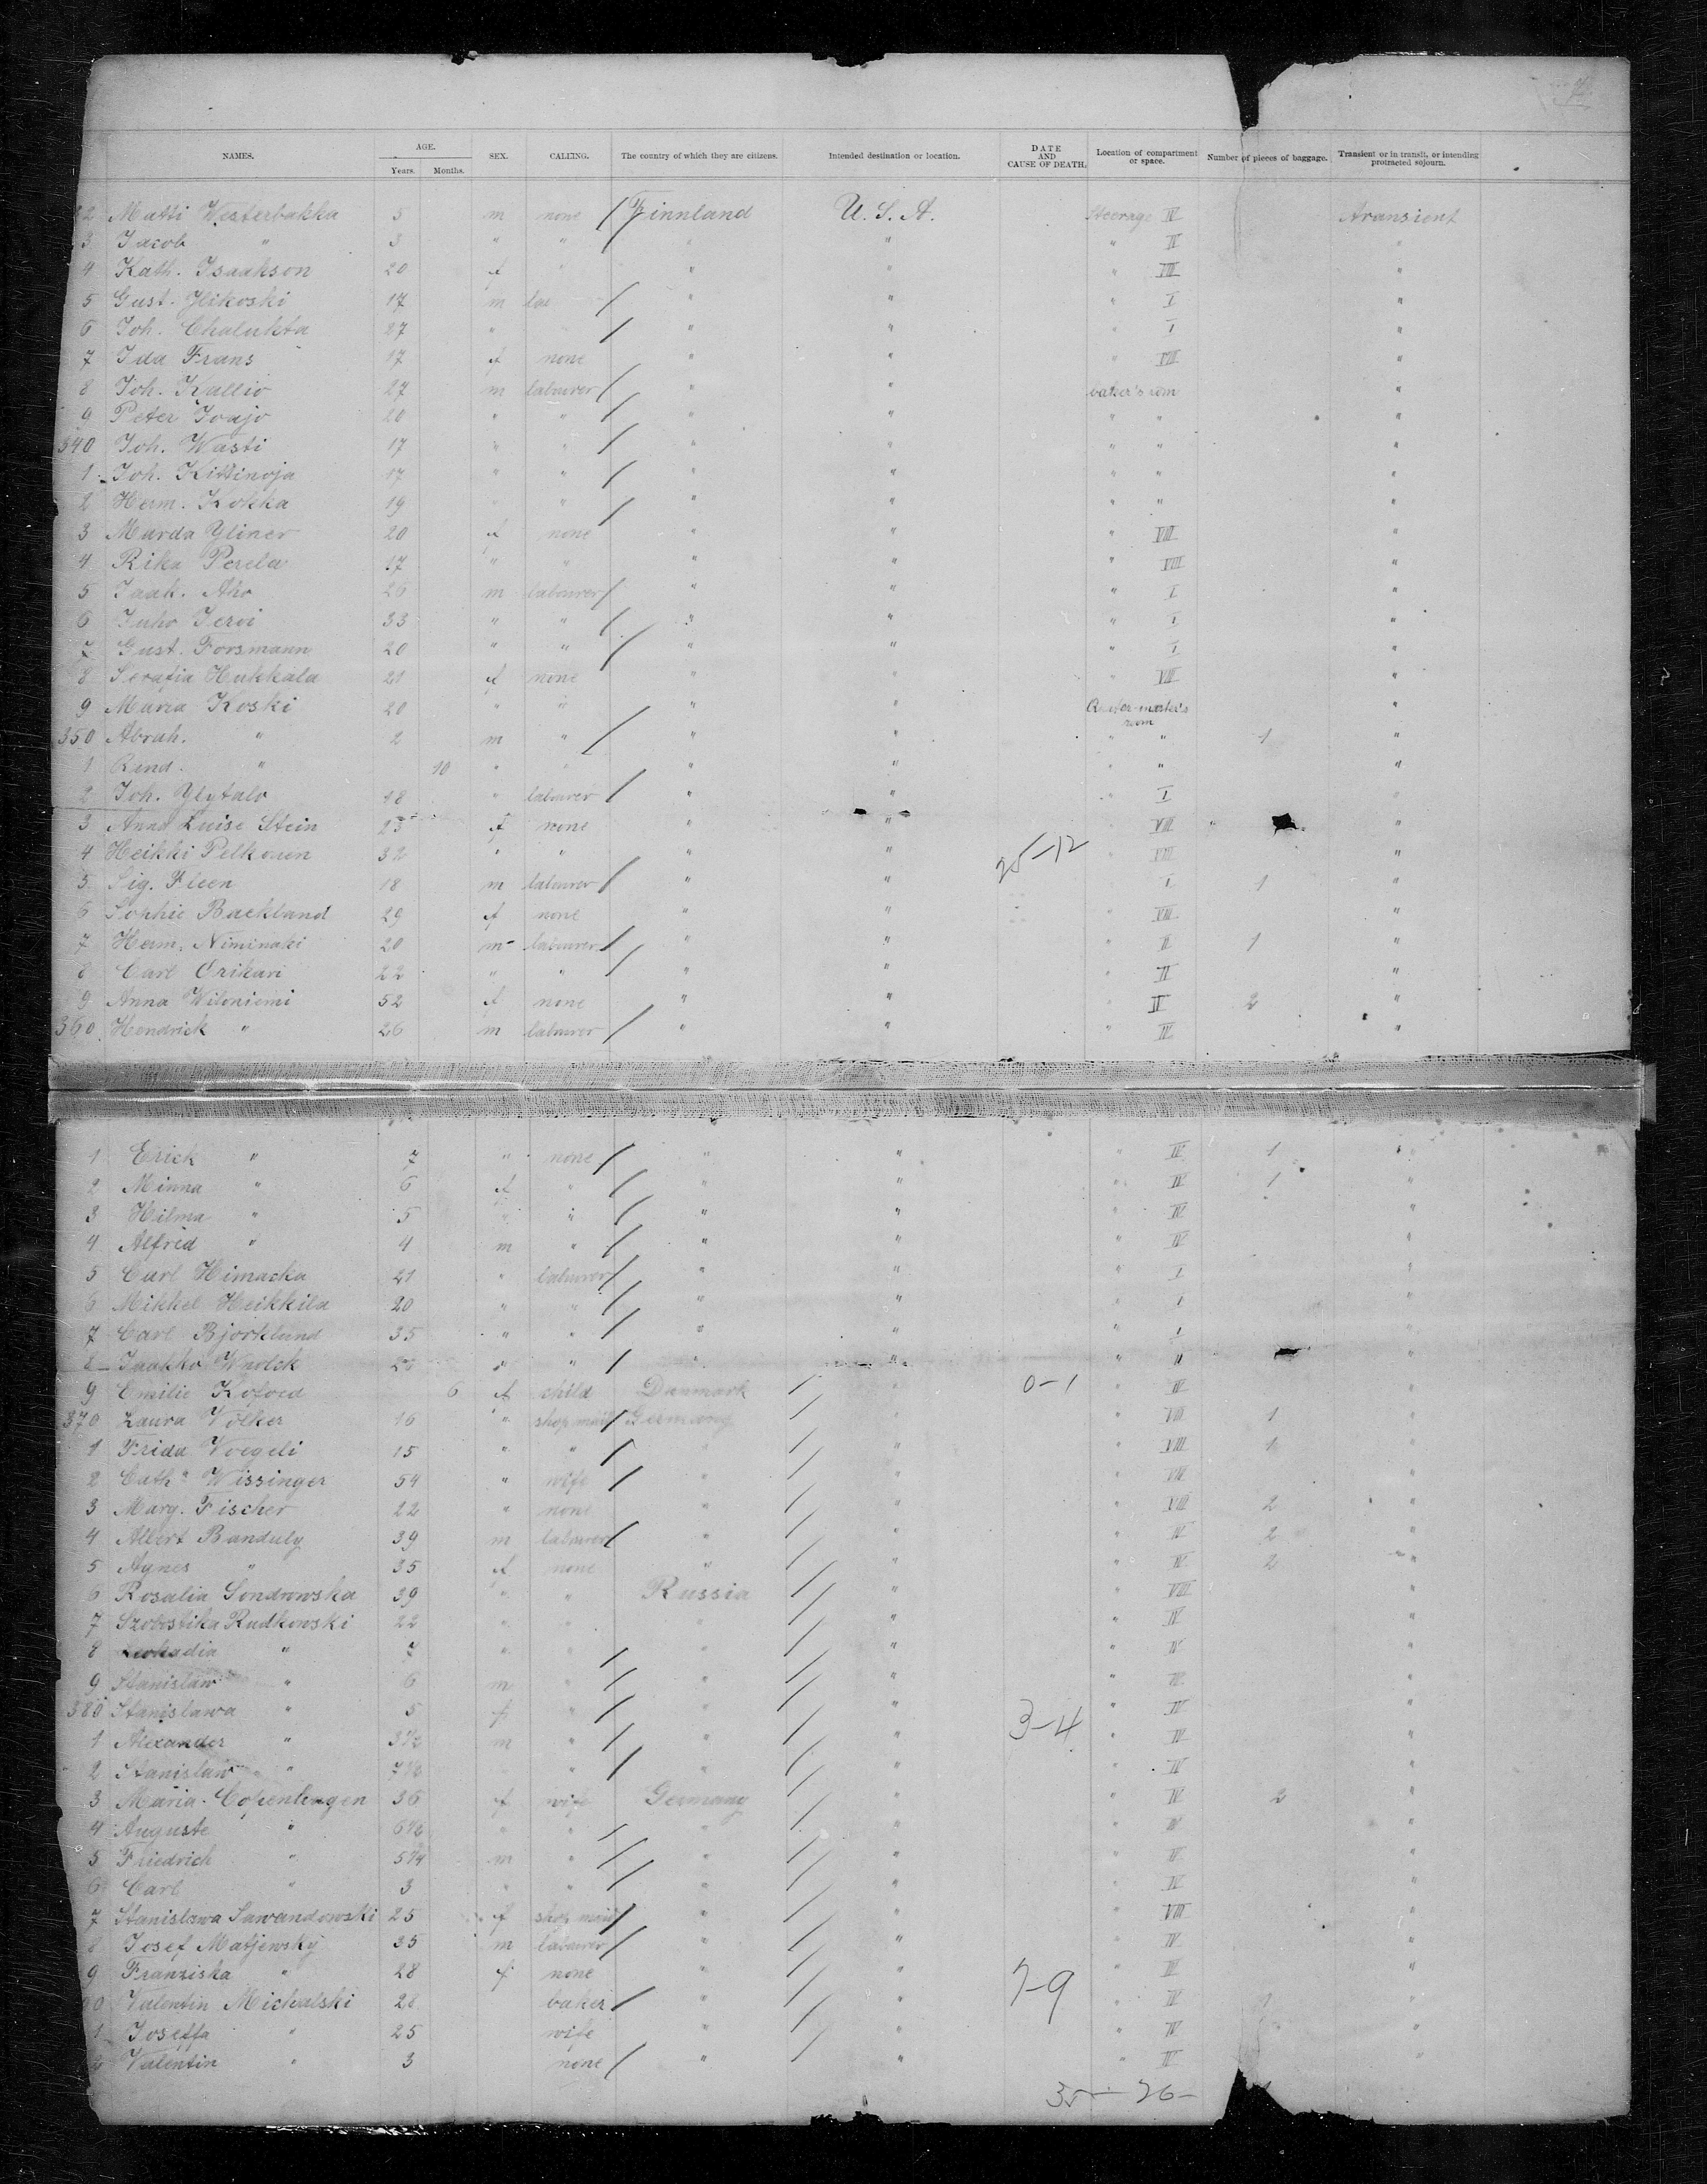 NAMES. AGE. Years. Months. SEX. CALLING. The country of which they are citizens. Intended destination or location. DATE AND CAUSE OF DEATH. Location of compartment or space. Number of pieces of baggage. Transient or in transit, or intending protracted sojourn.
2 Matti Westerbakka 5 m none Finnland U.S.A. Steerage IV Transient
3 Jacob " 3 " " " " " IV "
4 Kath. Isaakson 20 f " " " " VIII "
5 Gust. Ylikoski 17 m lab " " " I "
6 Joh. Chalukta 27 " " " " I "
7 Ida Frans 17 f none " " " VIII "
8 Joh. Kallio 27 m labourer " " baker's rom "
9 Peter Joujo 20 " " " " " " "
340 Joh. Wasti 17 " " " " " " "
1 Joh. Kittinoja 17 " " " " " " "
2 Herm. Kokka 19 " " " " " " "
3 Marda Yliner 20 f none " " " VIII "
4 Rika Perela 17 " " " " " VIII "
5 Jaak. Aho 26 m labourer " " " I "
6 Juho Jervi 33 " " " " " I "
7 Gust. Forsmann 20 " " " " " I "
8 Serafia Hukkala 21 f none " " " VIII "
9 Maria Koski 20 " " " " Quater-master's room "
350 Abrah. " 2 m " " " " " 1 "
1 " 10 " " " " " " "
2 Joh. Ylytalo 18 " labourer " " " I "
3 Anna Luise Stein 23 f none " " " VIII "
4 Heikki Pelkonen 32 " " " " 25-12 " VIII "
5 Sig. Fleen 18 m labourer " " " I 1 "
6 Sophie Backland 29 f none " " " VIII "
7 Herm. Niminaki 20 m labourer " " " II 1 "
8 Carl Orikari 22 " " " " " II "
9 Anna Wiloniemi 52 f none " " " IV 2 "
360 Hendrick " 26 m labourer " " " IV "
1 Erick " 7 " none " " " IV 1 "
2 Minna " 6 f " " " " IV 1 "
3 Hilma " 5 " " " " " IV "
4 Alfred " 4 m " " " " IV "
5 Carl Himacka 21 " labourer " " " I "
6 Mikkel Heikkila 20 " " " " " I "
7 Carl Bjorklund 35 " " " " " I "
8 Jaakko " " " " " " "
9 Emilie Kofoed 6 f child Danmark " 0-1 " IV "
370 Laura Völker 16 " shop maid Germany " " VIII 1 "
1 Frida Voegeli 15 " " " " " VIII 1 "
2 Cath" Wissinger 54 " wife " " " VIII "
3 Marg. Fischer 22 " none " " " VIII 2 "
4 Albert Banduly 39 m labourer " " " IV 2 "
5 Agnes " 35 f none " " " IV 2 "
6 Rosalia Sondrowska 39 " " Russia " " VIII "
7 Szolostika Rudkowski 22 " " " " " IV "
8 Leokadia " 7 " " " " " IV "
9 Stanislaw " 6 m " " " " IV "
380 Stanislawa " 5 f " " " " IV "
1 Alexander " 3½ m " " " 3-4 " IV "
2 Stanislaw " " " " " IV "
3 Maria Copenhagen 36 f wife Germany " " IV 2 "
4 Auguste " 6½ " " " " " IV "
5 Friedrich " 5¼ m " " " " IV "
6 Carl " 3 " " " " " IV "
7 Stanislawa Sawandowski 25 f shop maid " " " VIII "
8 Josef Matjewsky 35 m labourer " " " IV "
9 Franziska " 28 f none " " " IV "
90 Valentin Michalski 28 baker " " 7-9 " IV 1 "
1 Joseffa " 25 wife " " " IV "
2 Valentin " 3 none " " " IV "
35-26-